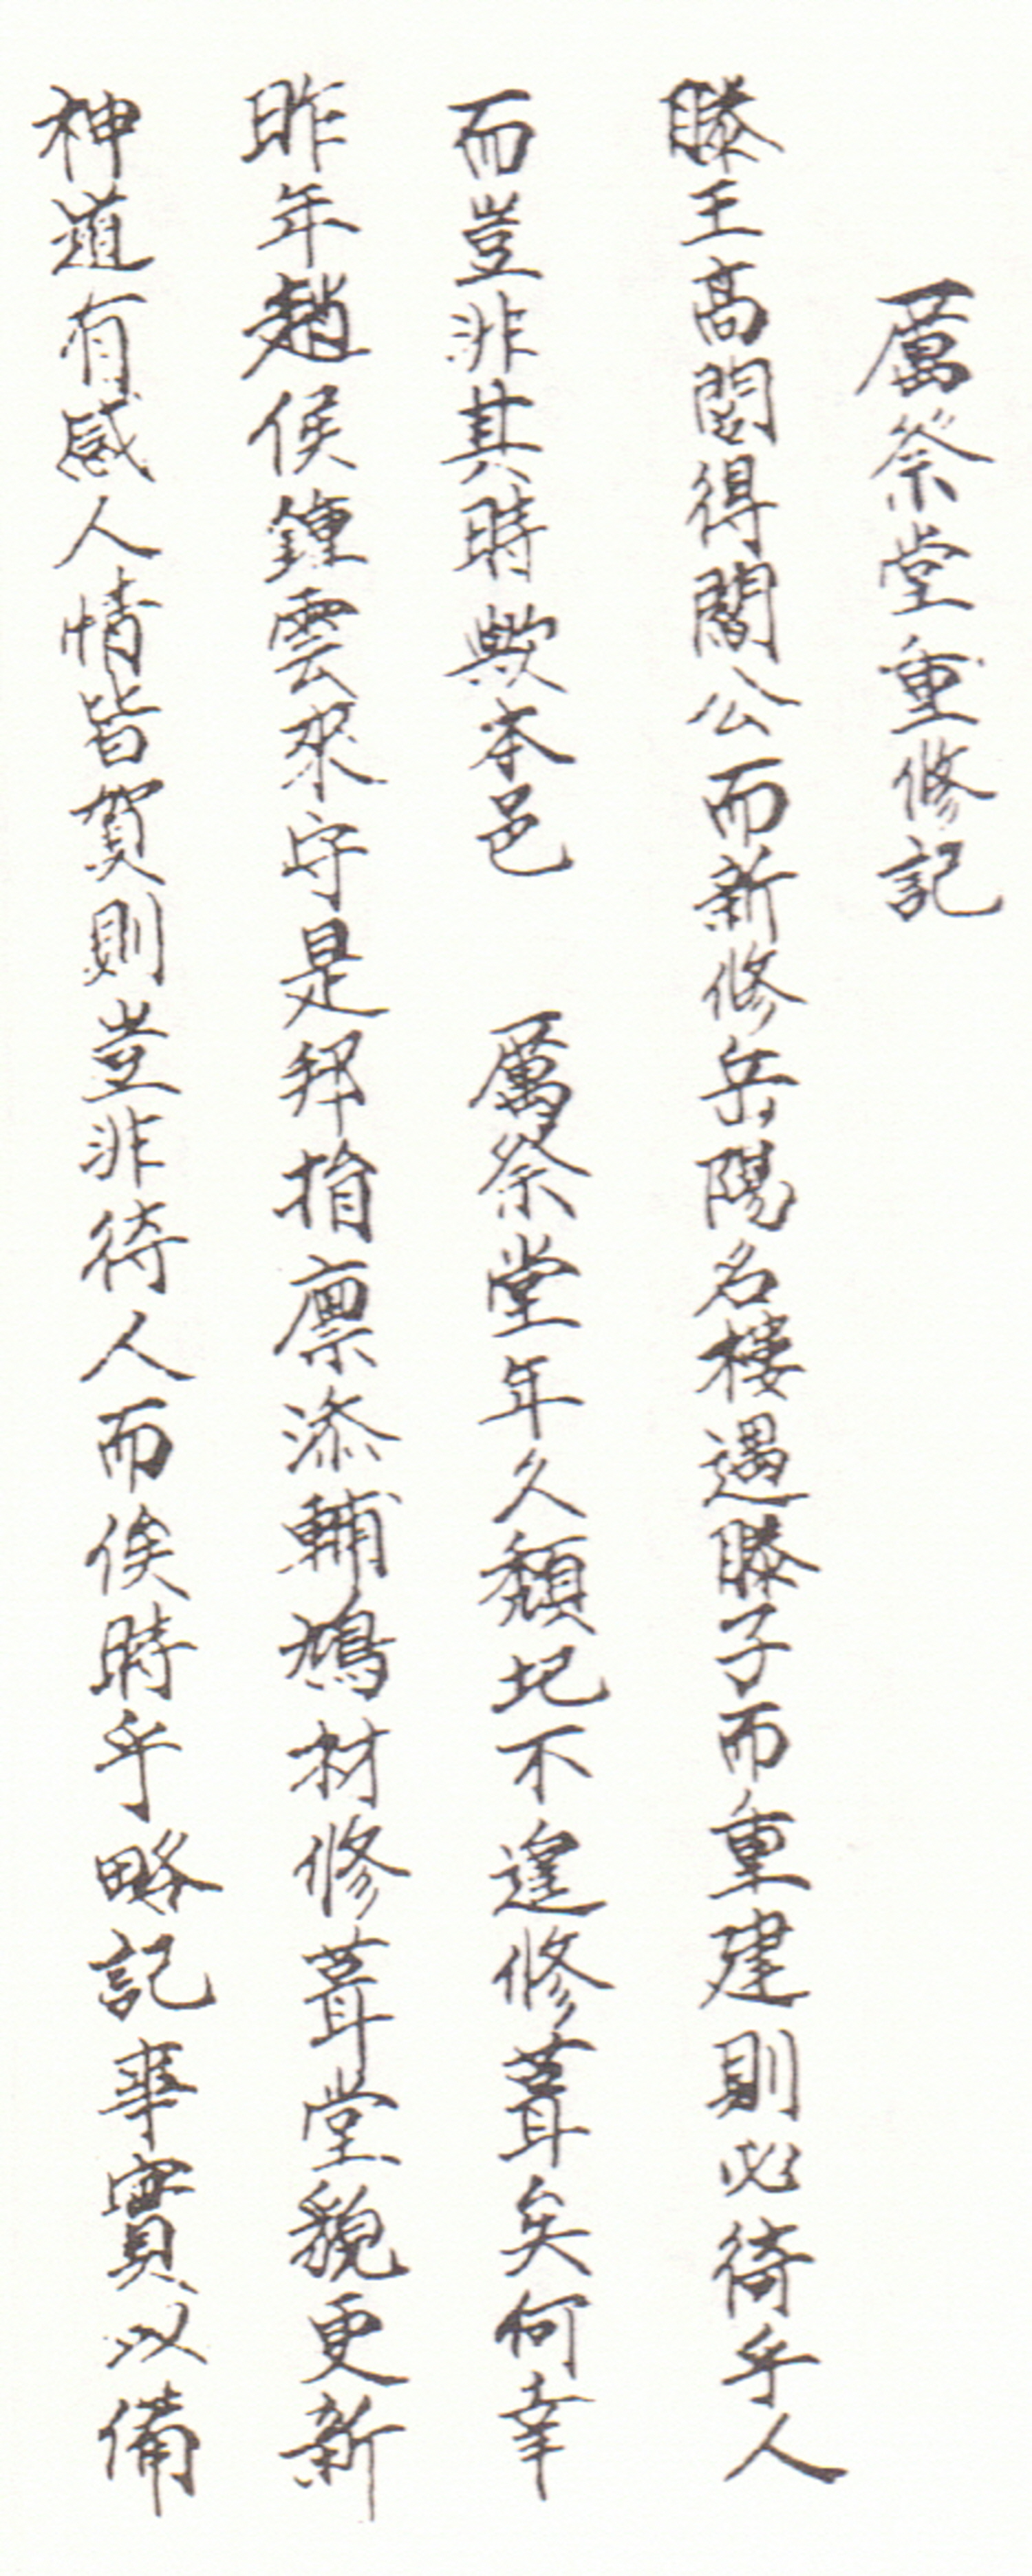 厲祭堂重修記
滕王高閣得閻公而新修岳陽名樓遇滕子而重建則必待乎人
而豈非其時歟本邑 厲祭堂年久頹圮不遑修葺矣何幸
昨年趙侯鍾雲來守是邦捐廩添輔鳩材修葺堂貌更新
神道有感人情皆賀則豈非待人而俟時乎略記事實以備